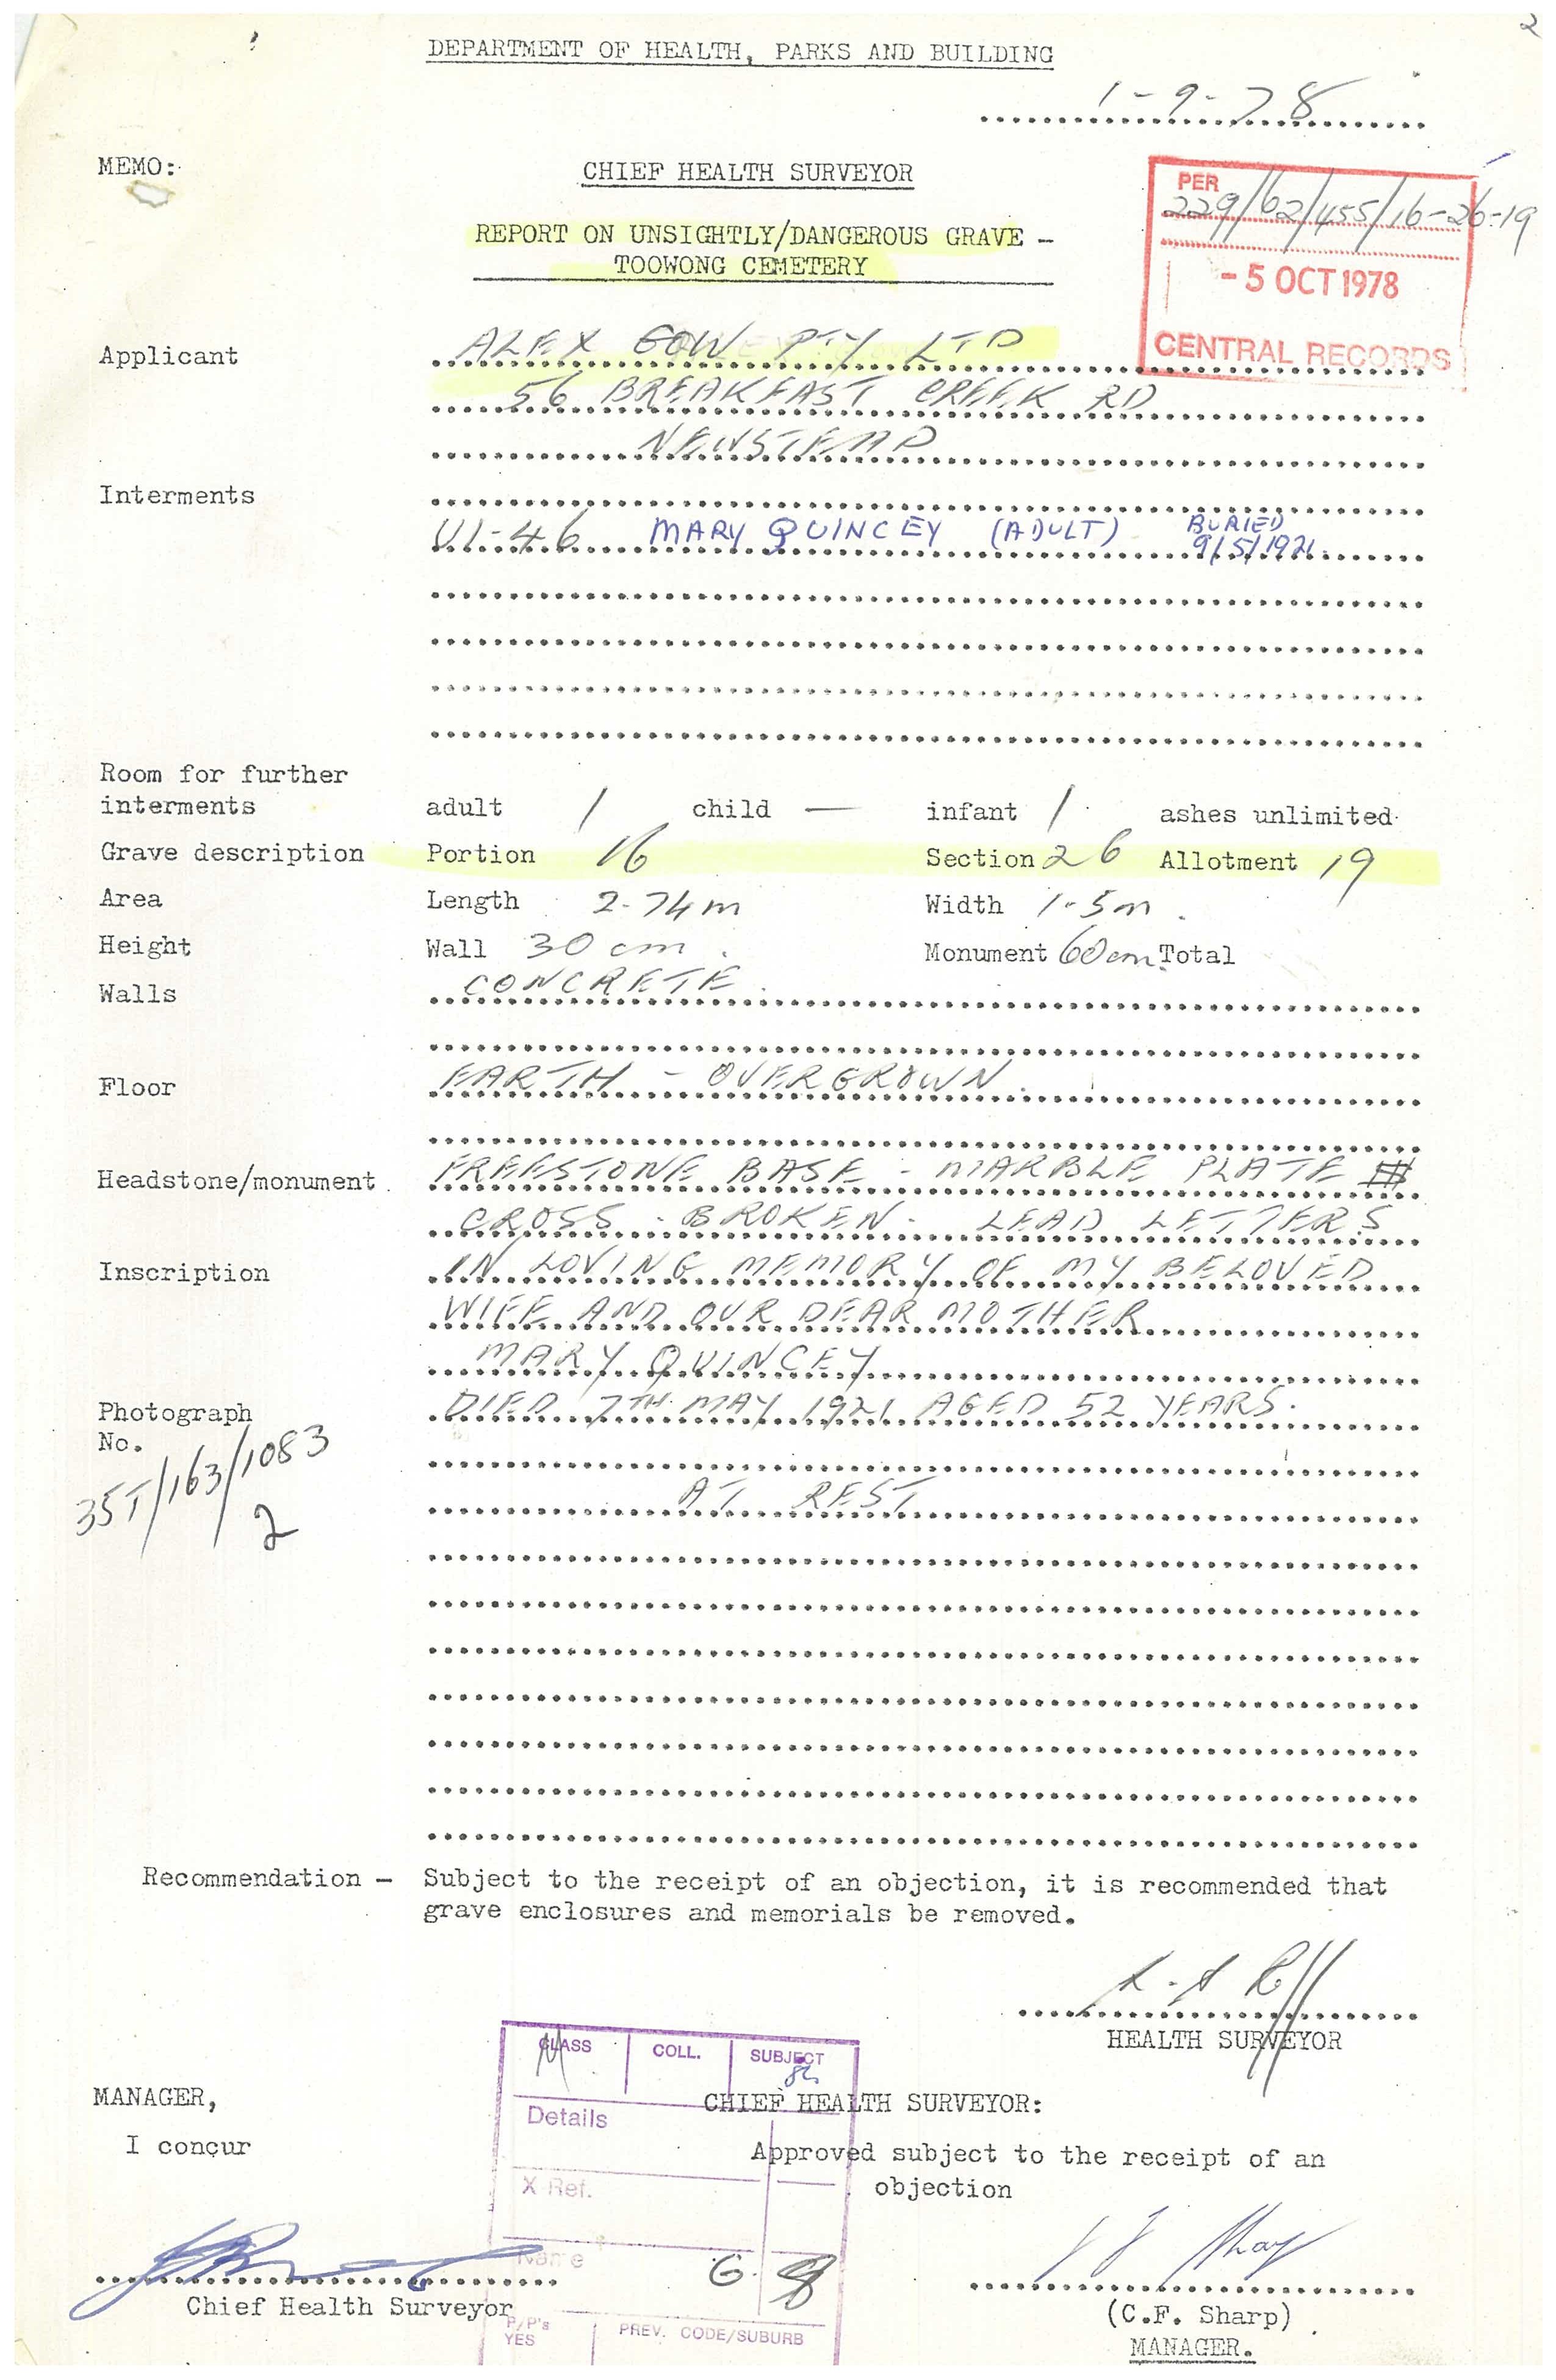 2
DEPARTMENT OF HEALTH, PARKS AND BUILDING
1-9-78
MEMO:
CHIEF HEALTH SURVEYOR
REPORT ON UNSIGHTLY/DANGEROUS GRAVE -
TOOWONG CEMETERY
PER
229/62/455/16-26-19
- 5 OCT 1978
CENTRAL RECORDS
Applicant ALEX GOW PTY LTD
56 BREAKFAST CREEK RD
NEWSTEAD
Interments
U1-46 MARY QUINCEY (ADULT) BURIED
9/5/1921.
Room for further
interments adult 1 child — infant 1 ashes unlimited
Grave description Portion 16 Section 26 Allotment 19
Area Length 2-74m Width 1-5m.
Height Wall 30 cm. Monument 60cm Total
Walls CONCRETE.
Floor EARTH - OVERGROWN.
Headstone/monument. FREESTONE BASE - MARBLE PLATE
CROSS - BROKEN - LEAD LETTERS
Inscription IN LOVING MEMORY OF MY BELOVED
WIFE AND OUR DEAR MOTHER
MARY QUINCEY
Photograph DIED 7TH MAY 1921 AGED 52 YEARS.
No.
35T/163/1083
2
AT REST
Recommendation - Subject to the receipt of an objection, it is recommended that
grave enclosures and memorials be removed.
HEALTH SURVEYOR
CLASS COLL. SUBJECT
MANAGER, CHIEF HEALTH SURVEYOR:
Details
I concur Approved subject to the receipt of an
X Ref. objection
Name G.
Chief Health Surveyor (C.F. Sharp)
P/P's
YES PREV. CODE/SUBURB MANAGER.